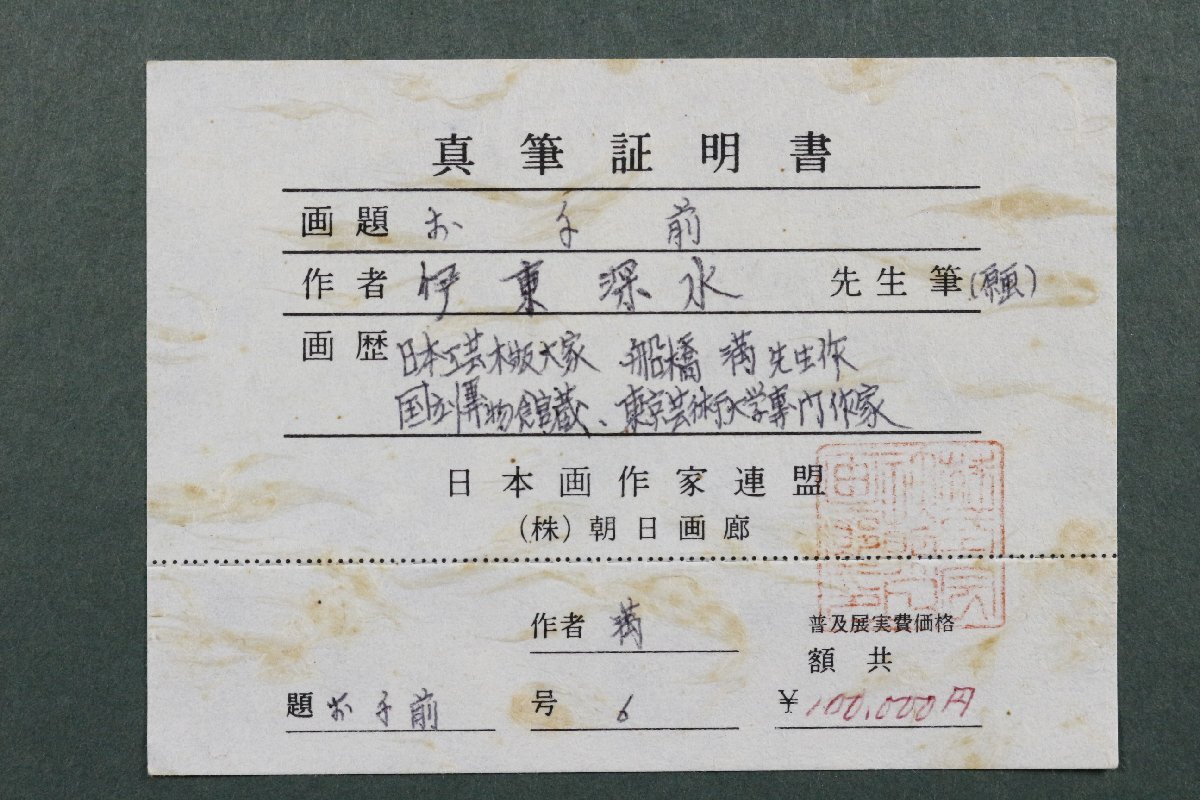 真筆証明書
画題 お手前
作者 伊東深水 先生筆(原画)
画歴 日本工芸木版大家 船橋 満先生作
国立博物館蔵、東京芸術大学専門作家
日本画作家連盟
(株)朝日画廊
作者 満
普及展実費価格
額共
題 お手前 号 6 ¥100.000円